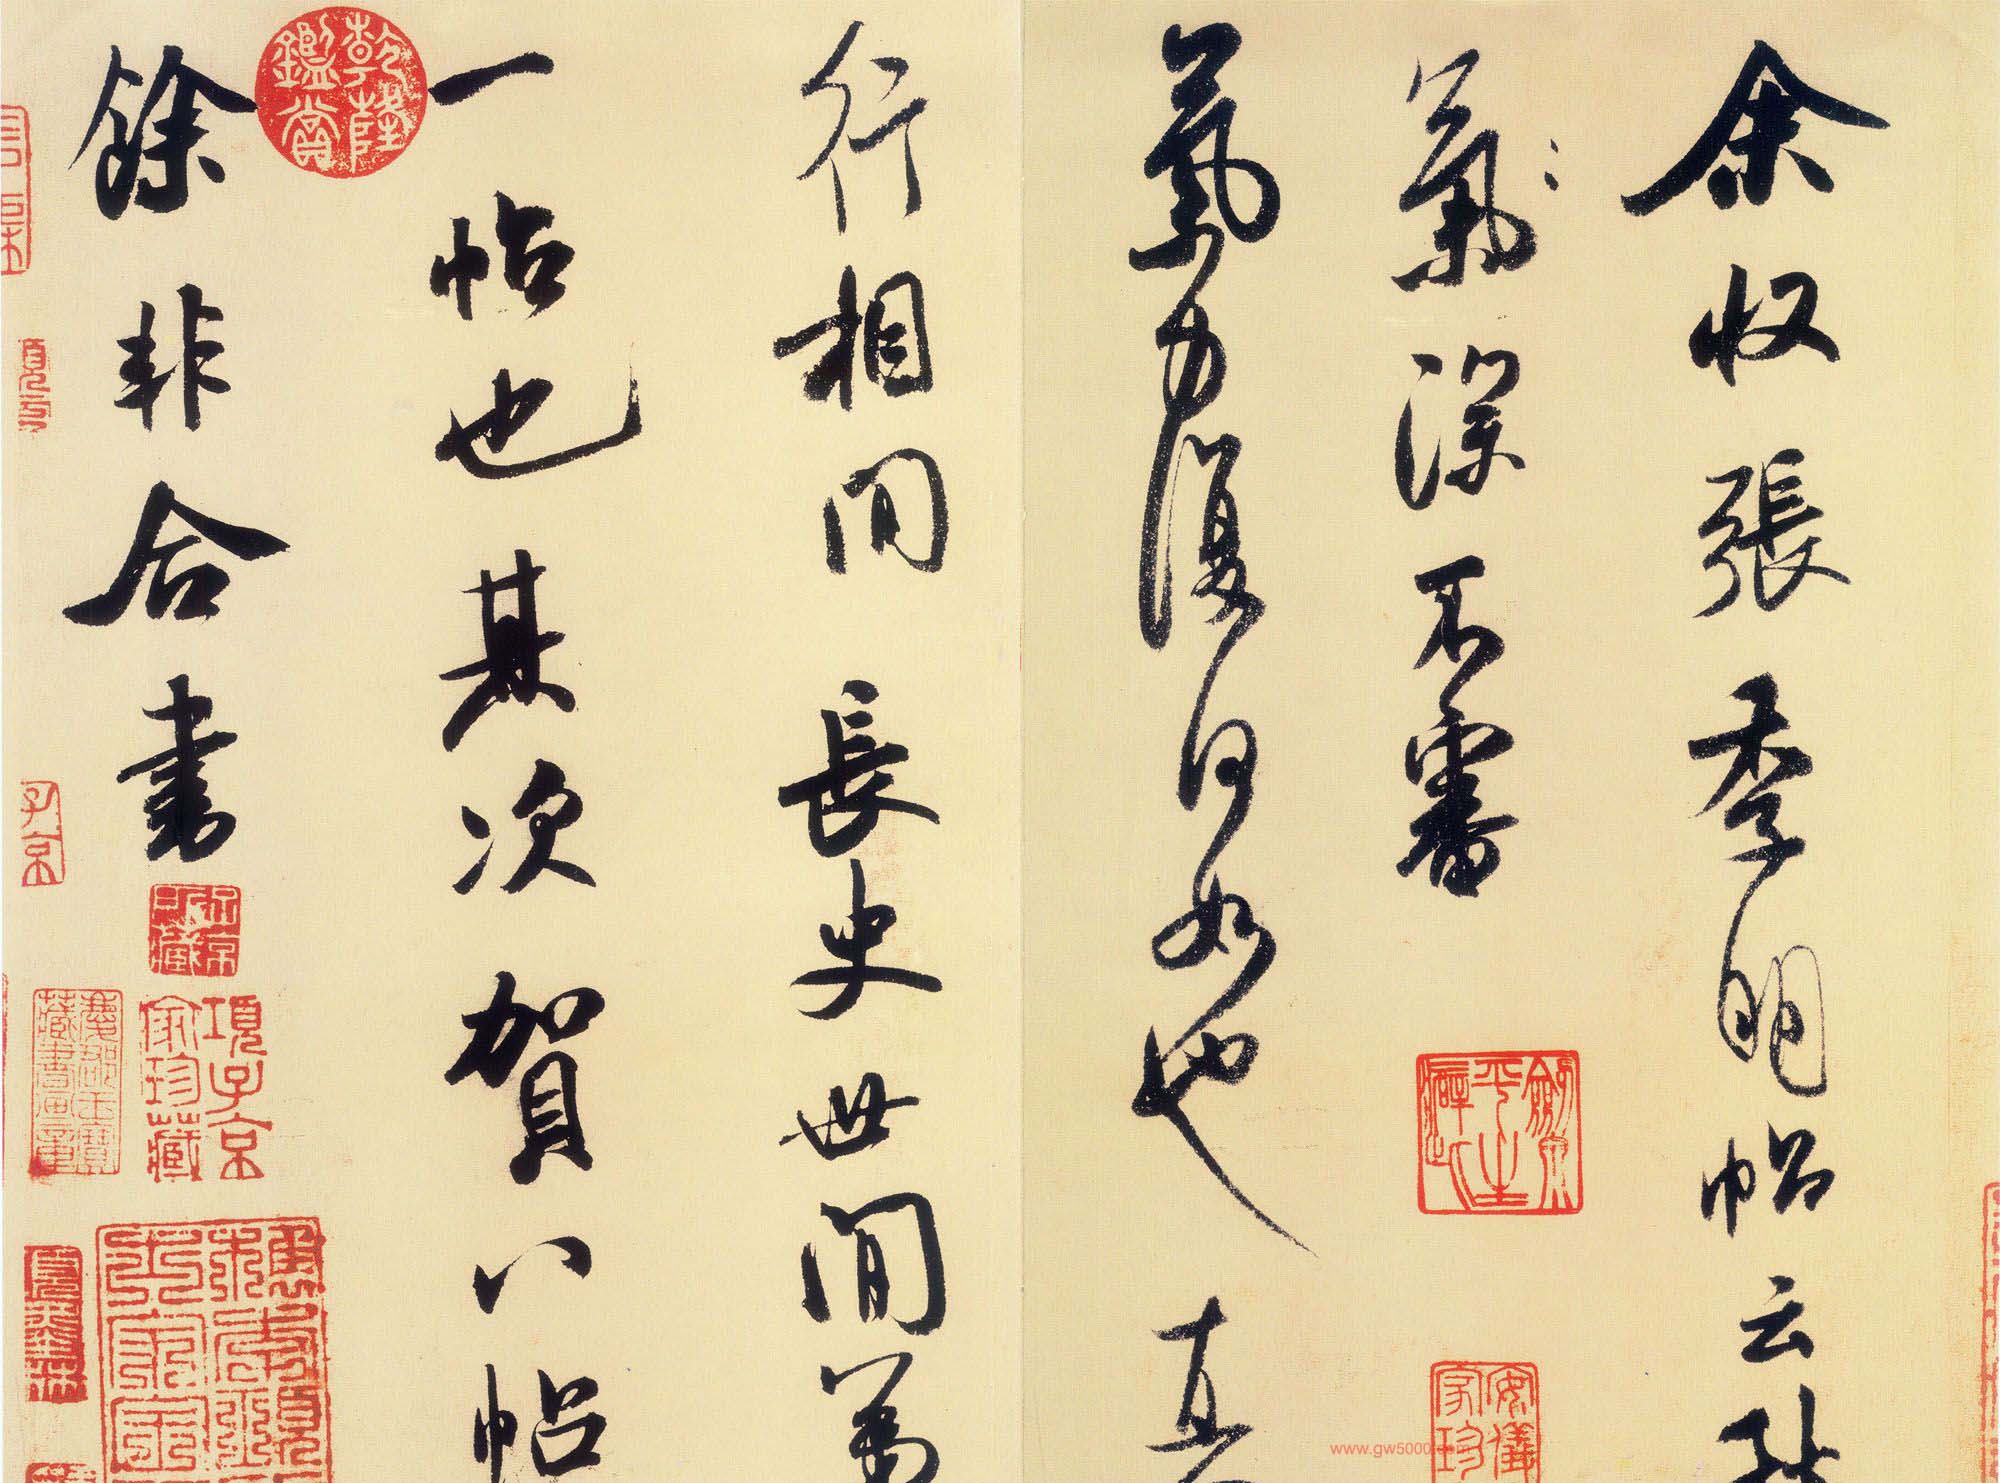 余收張季明帖云秋
氣深不審
氣力復何如也真
行相間長史世間第
一帖也其次賀八帖
餘非合書
乾隆鑑賞
項子京家珍藏
子京
www.gw5000.com